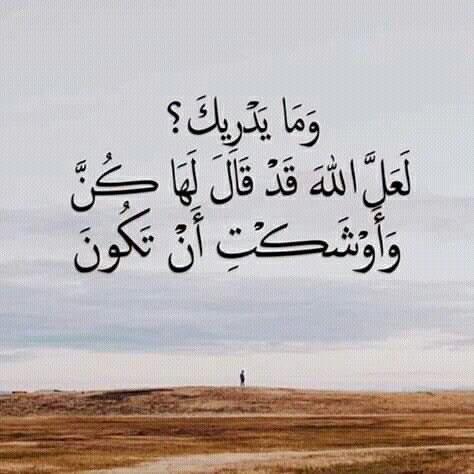 وَمَا يَدْرِيكَ؟
لَعَلَّ اللهَ قَدْ قَالَ لَهَا كُنَّ
وَأَوْشَكْتِ أَنْ تَكُونَ